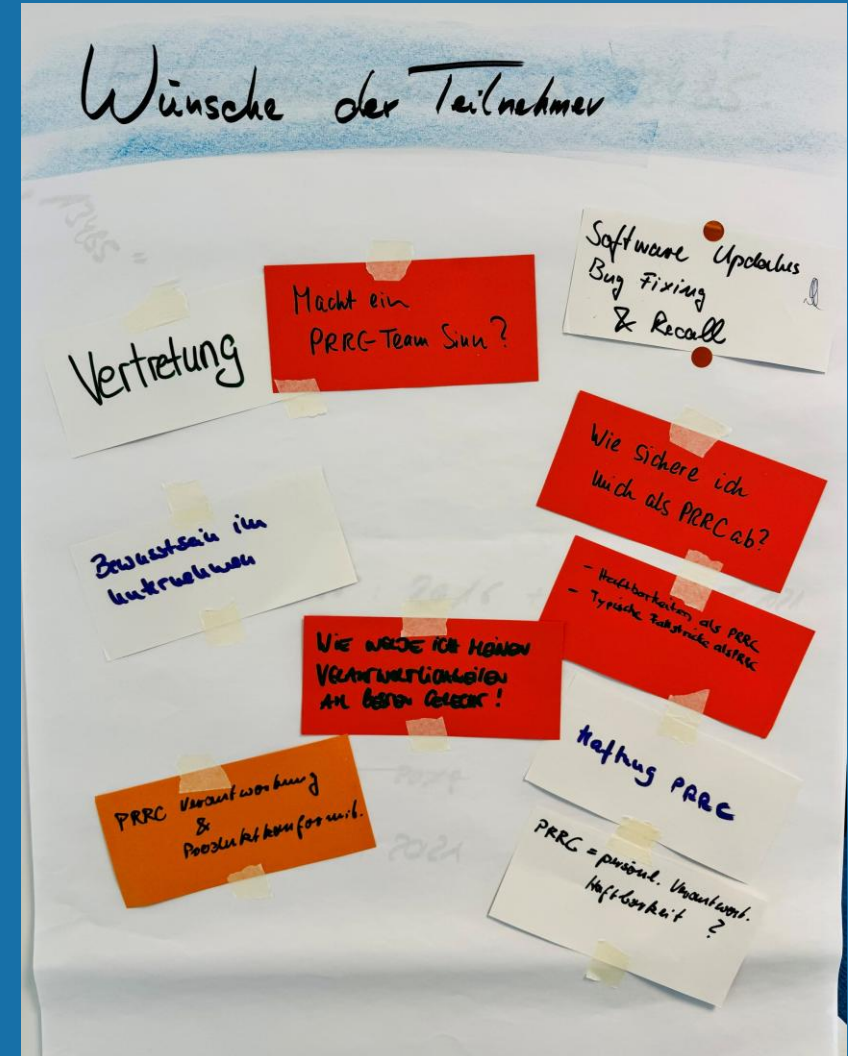 Wünsche der Teilnehmer
13485 =
Software Updates
Bug Fixing
& Recall
Macht ein
PRRC-Team Sinn?
Vertretung
Wie sichere ich
mich als PRRC ab?
Bewusstsein im
Unternehmen
- Haftbarkeiten als PRRC
- Typische Fallstricke als PRRC
2016 +
WIE WERDE ICH MEINEN
VERANTWORTLICHKEITEN
AM BESTEN GERECHT!
Haftung PRRC
PRRC Verantwortung
&
Produktkonformit.
2021
PRRC = persönl. Verantwort.
Haftbarkeit ?